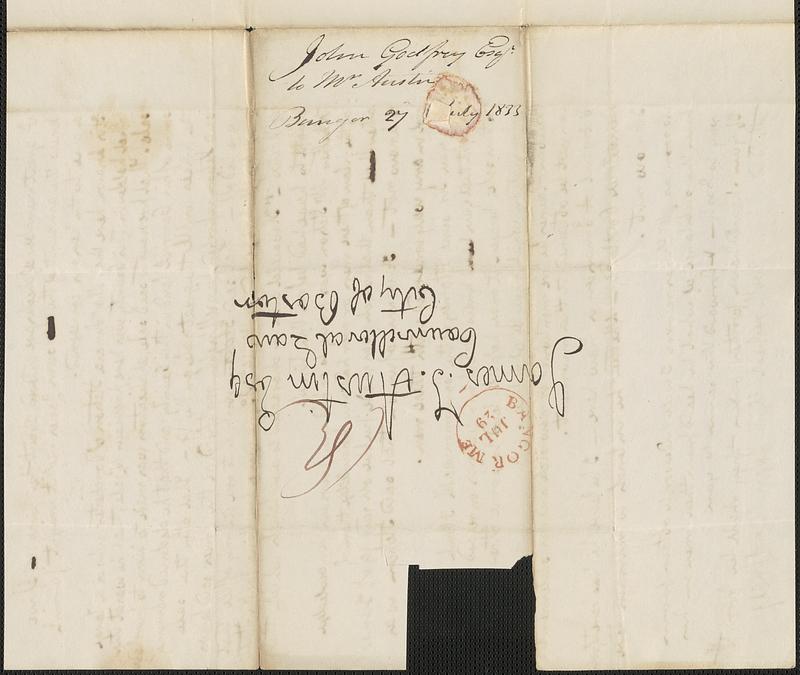 John Godfrey Esqr
to Mr Austin
Bangor 27 July 1833
James T. Austin Esq
Counsellor at Law
City of Boston
BANGOR ME
JUL
29